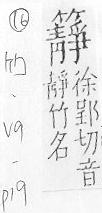 徐郢切音
靜竹名
⑯
竹 - V9 - p19